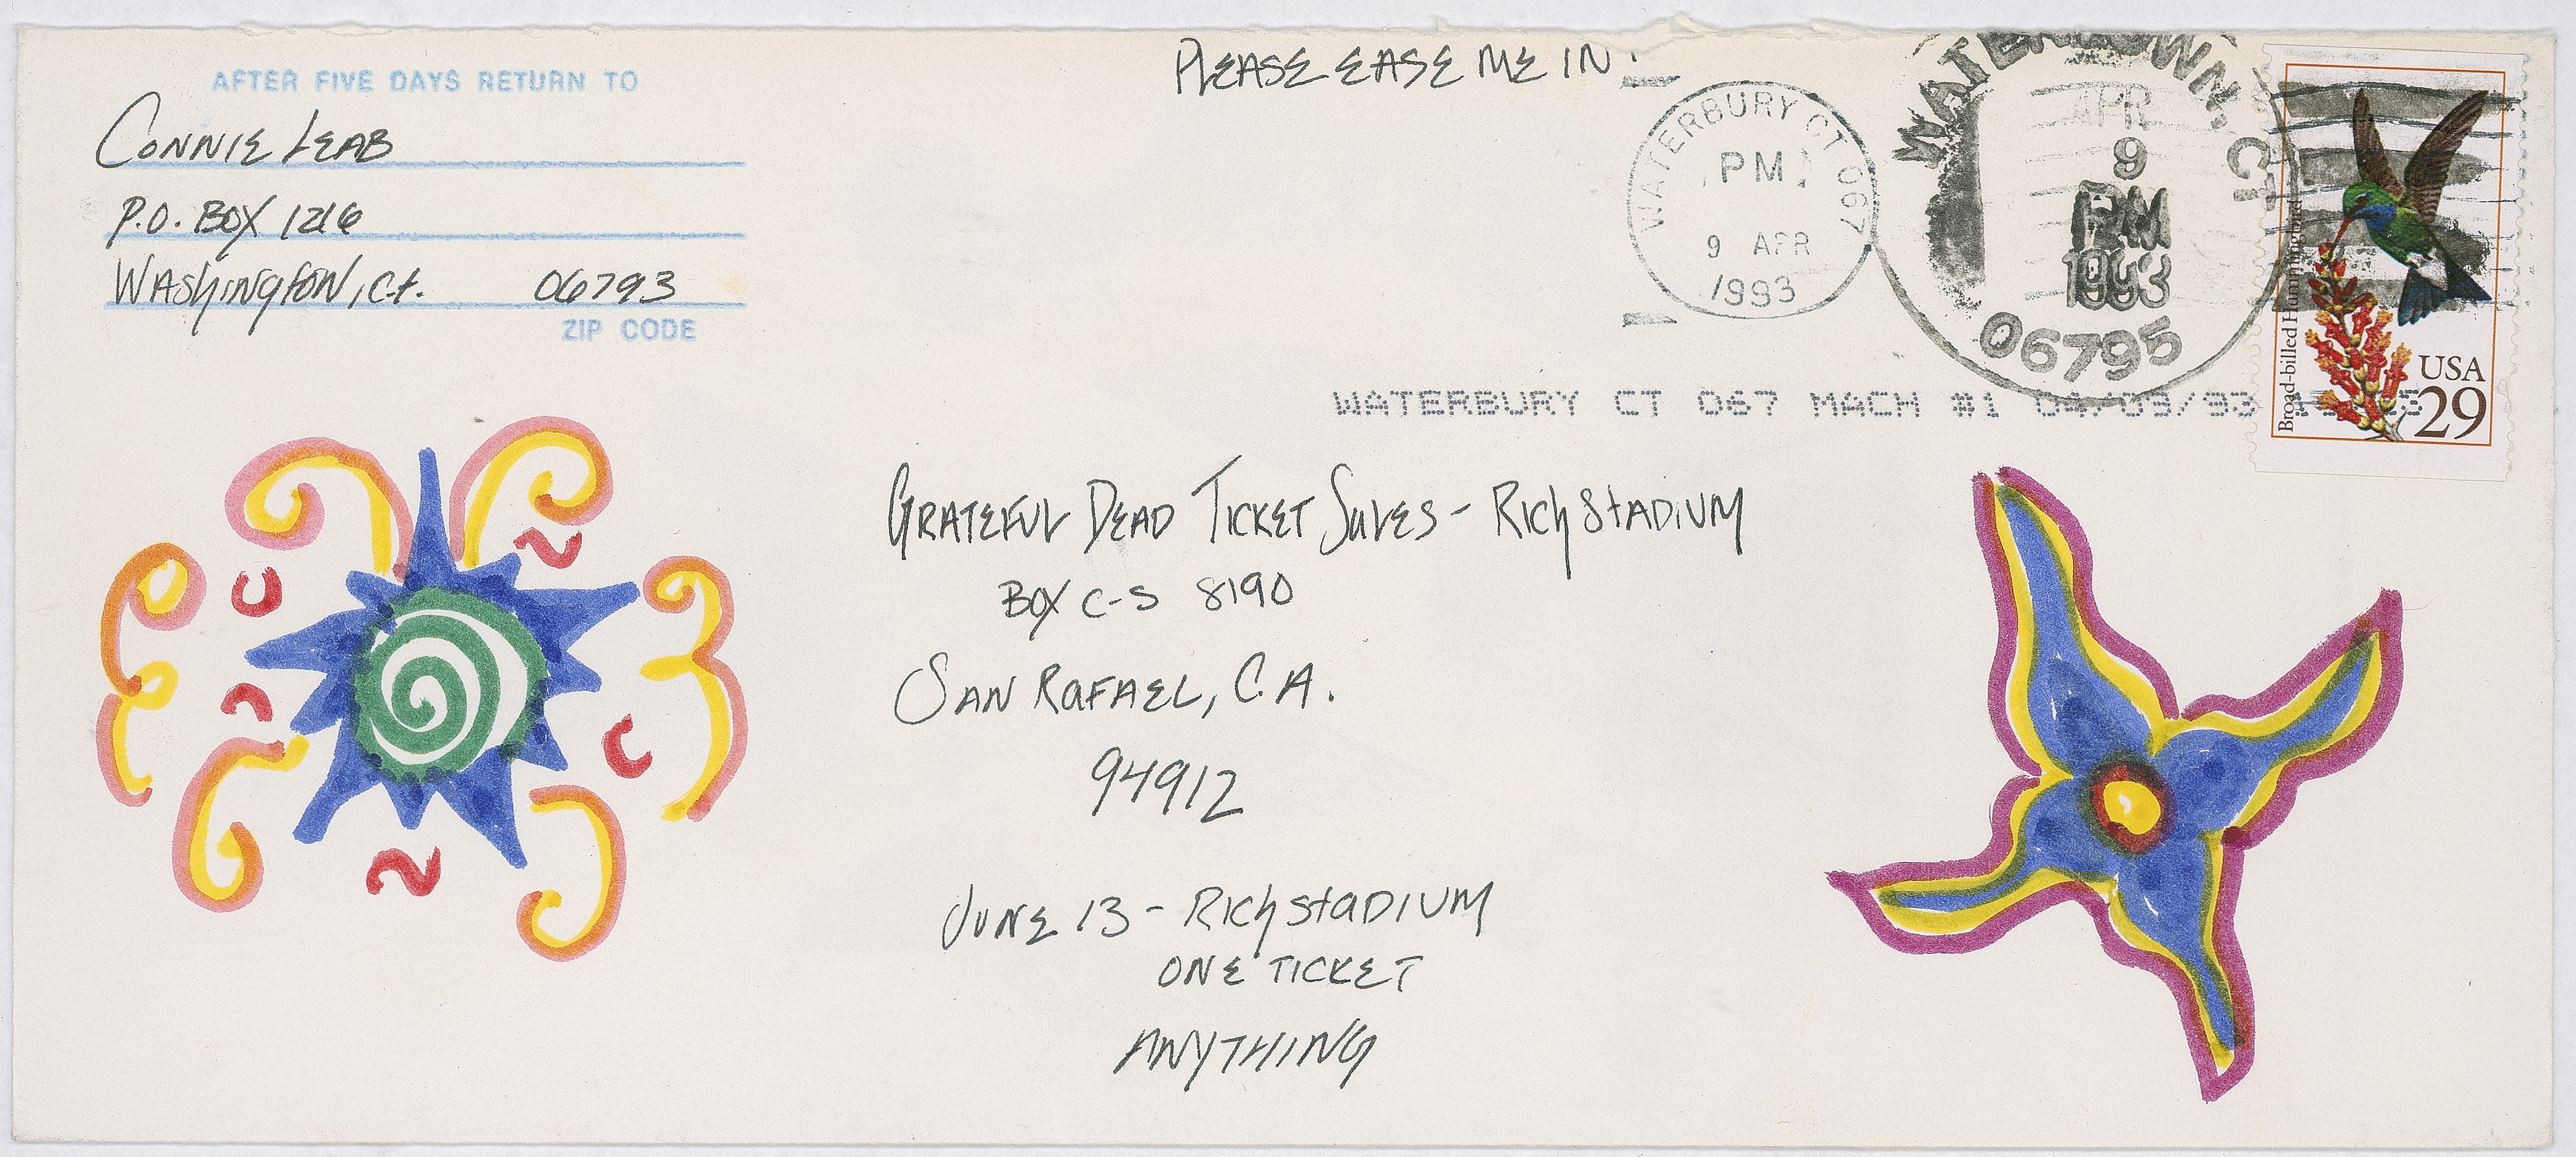 PLEASE EASE ME IN!
AFTER FIVE DAYS RETURN TO
CONNIE LEAB
P.O. BOX 1216
WASHINGTON, Ct. 06793
ZIP CODE
WATERBURY CT 067
PM
9 APR
1993
WATERTOWN, CT
APR
9
PM
1993
06795
WATERBURY CT 067 MACH #1 04/09/93
Broad-billed Hummingbird
USA
29
GRATEFUL DEAD TICKET SALES - RICH STADIUM
BOX C-S 8190
SAN RAFAEL, C.A.
94912
JUNE 13 - RICH STADIUM
ONE TICKET
ANYTHING